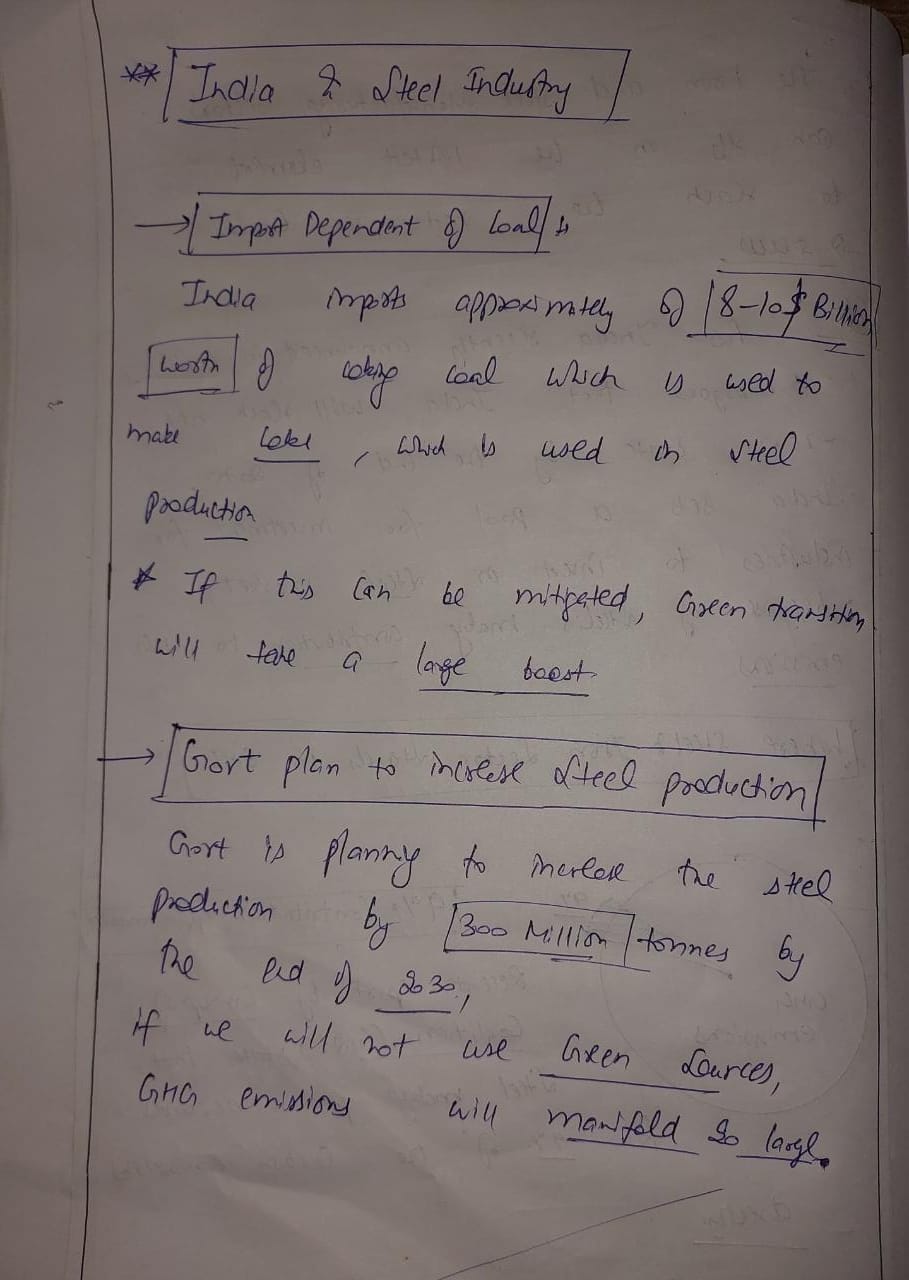 ** India & Steel Industry
→ Import Dependent of Coal :
India imports approximately of 8-10$ Billion
worth of coking coal which is used to
make coke, which is used in steel
production
* If this can be mitigated, Green transition
will take a large boost.
→ Govt plan to increase steel production
Govt is planning to increase the steel
production by 300 Million tonnes by
the end of 2030,
if we will not use Green sources,
GHG emissions will manifold so large.